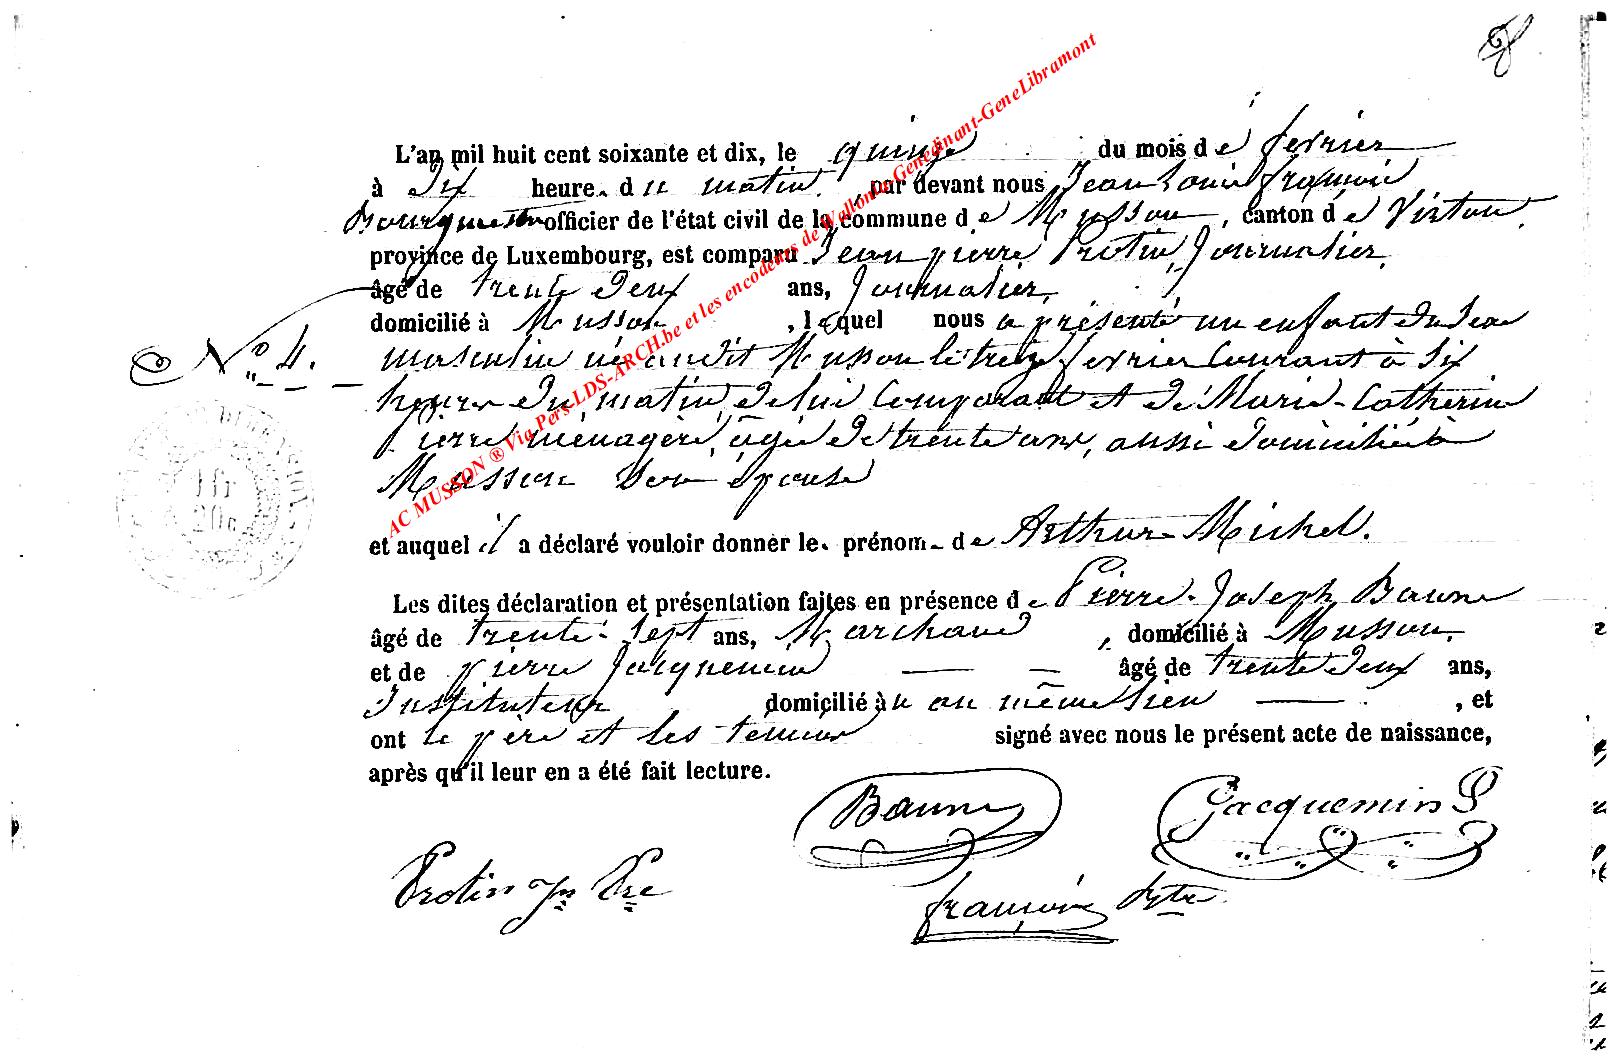 L'an mil huit cent soixante et dix, le quinze du mois de fevrier
à dix heure. du matin, par devant nous Jean Louis françois
Bourgmestre officier de l'état civil de la commune de Musson, canton de Virton,
province de Luxembourg, est comparu Jean pierre Protin, Journalier,
âgé de trente deux ans, Journalier,
domicilié à Musson, lequel nous a présenté un enfant du sexe
N° 4. masculin né audit Musson le treize fevrier Courant à six
heures du matin, de lui Comparant et de Marie-Catherine
Pierre ménagère, âgée de trente ans, aussi domiciliée à
Musson son épouse
et auquel il a déclaré vouloir donner le. prénom- de Arthur-Michel.
Les dites déclaration et présentation faites en présence de Pierre-Joseph Baune
âgé de trente-sept ans, Marchand, domicilié à Musson,
et de pierre Jacquemin âgé de trente deux ans,
Instituteur domicilié à u au même lieu, et
ont le père et les temoins signé avec nous le présent acte de naissance,
après qu'il leur en a été fait lecture.
Baune Jacquemin P
Protin Jn Pre
françois
AC MUSSON ® Via Pers-LDS-ARCH.be et les encodeurs de Wallonia-Genedinant-GeneLibramont